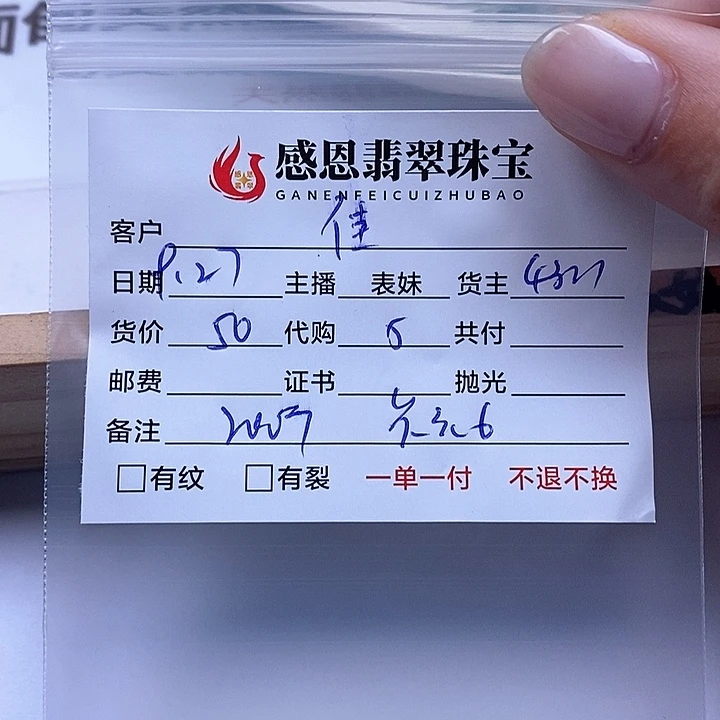 感恩翡翠珠宝
GANENFEICUIZHUBAO
客户 佳
日期 9.27 主播 表妹 货主
货价 50 代购 5 共付
邮费 证书 抛光
备注
□有纹 □有裂 一单一付 不退不换